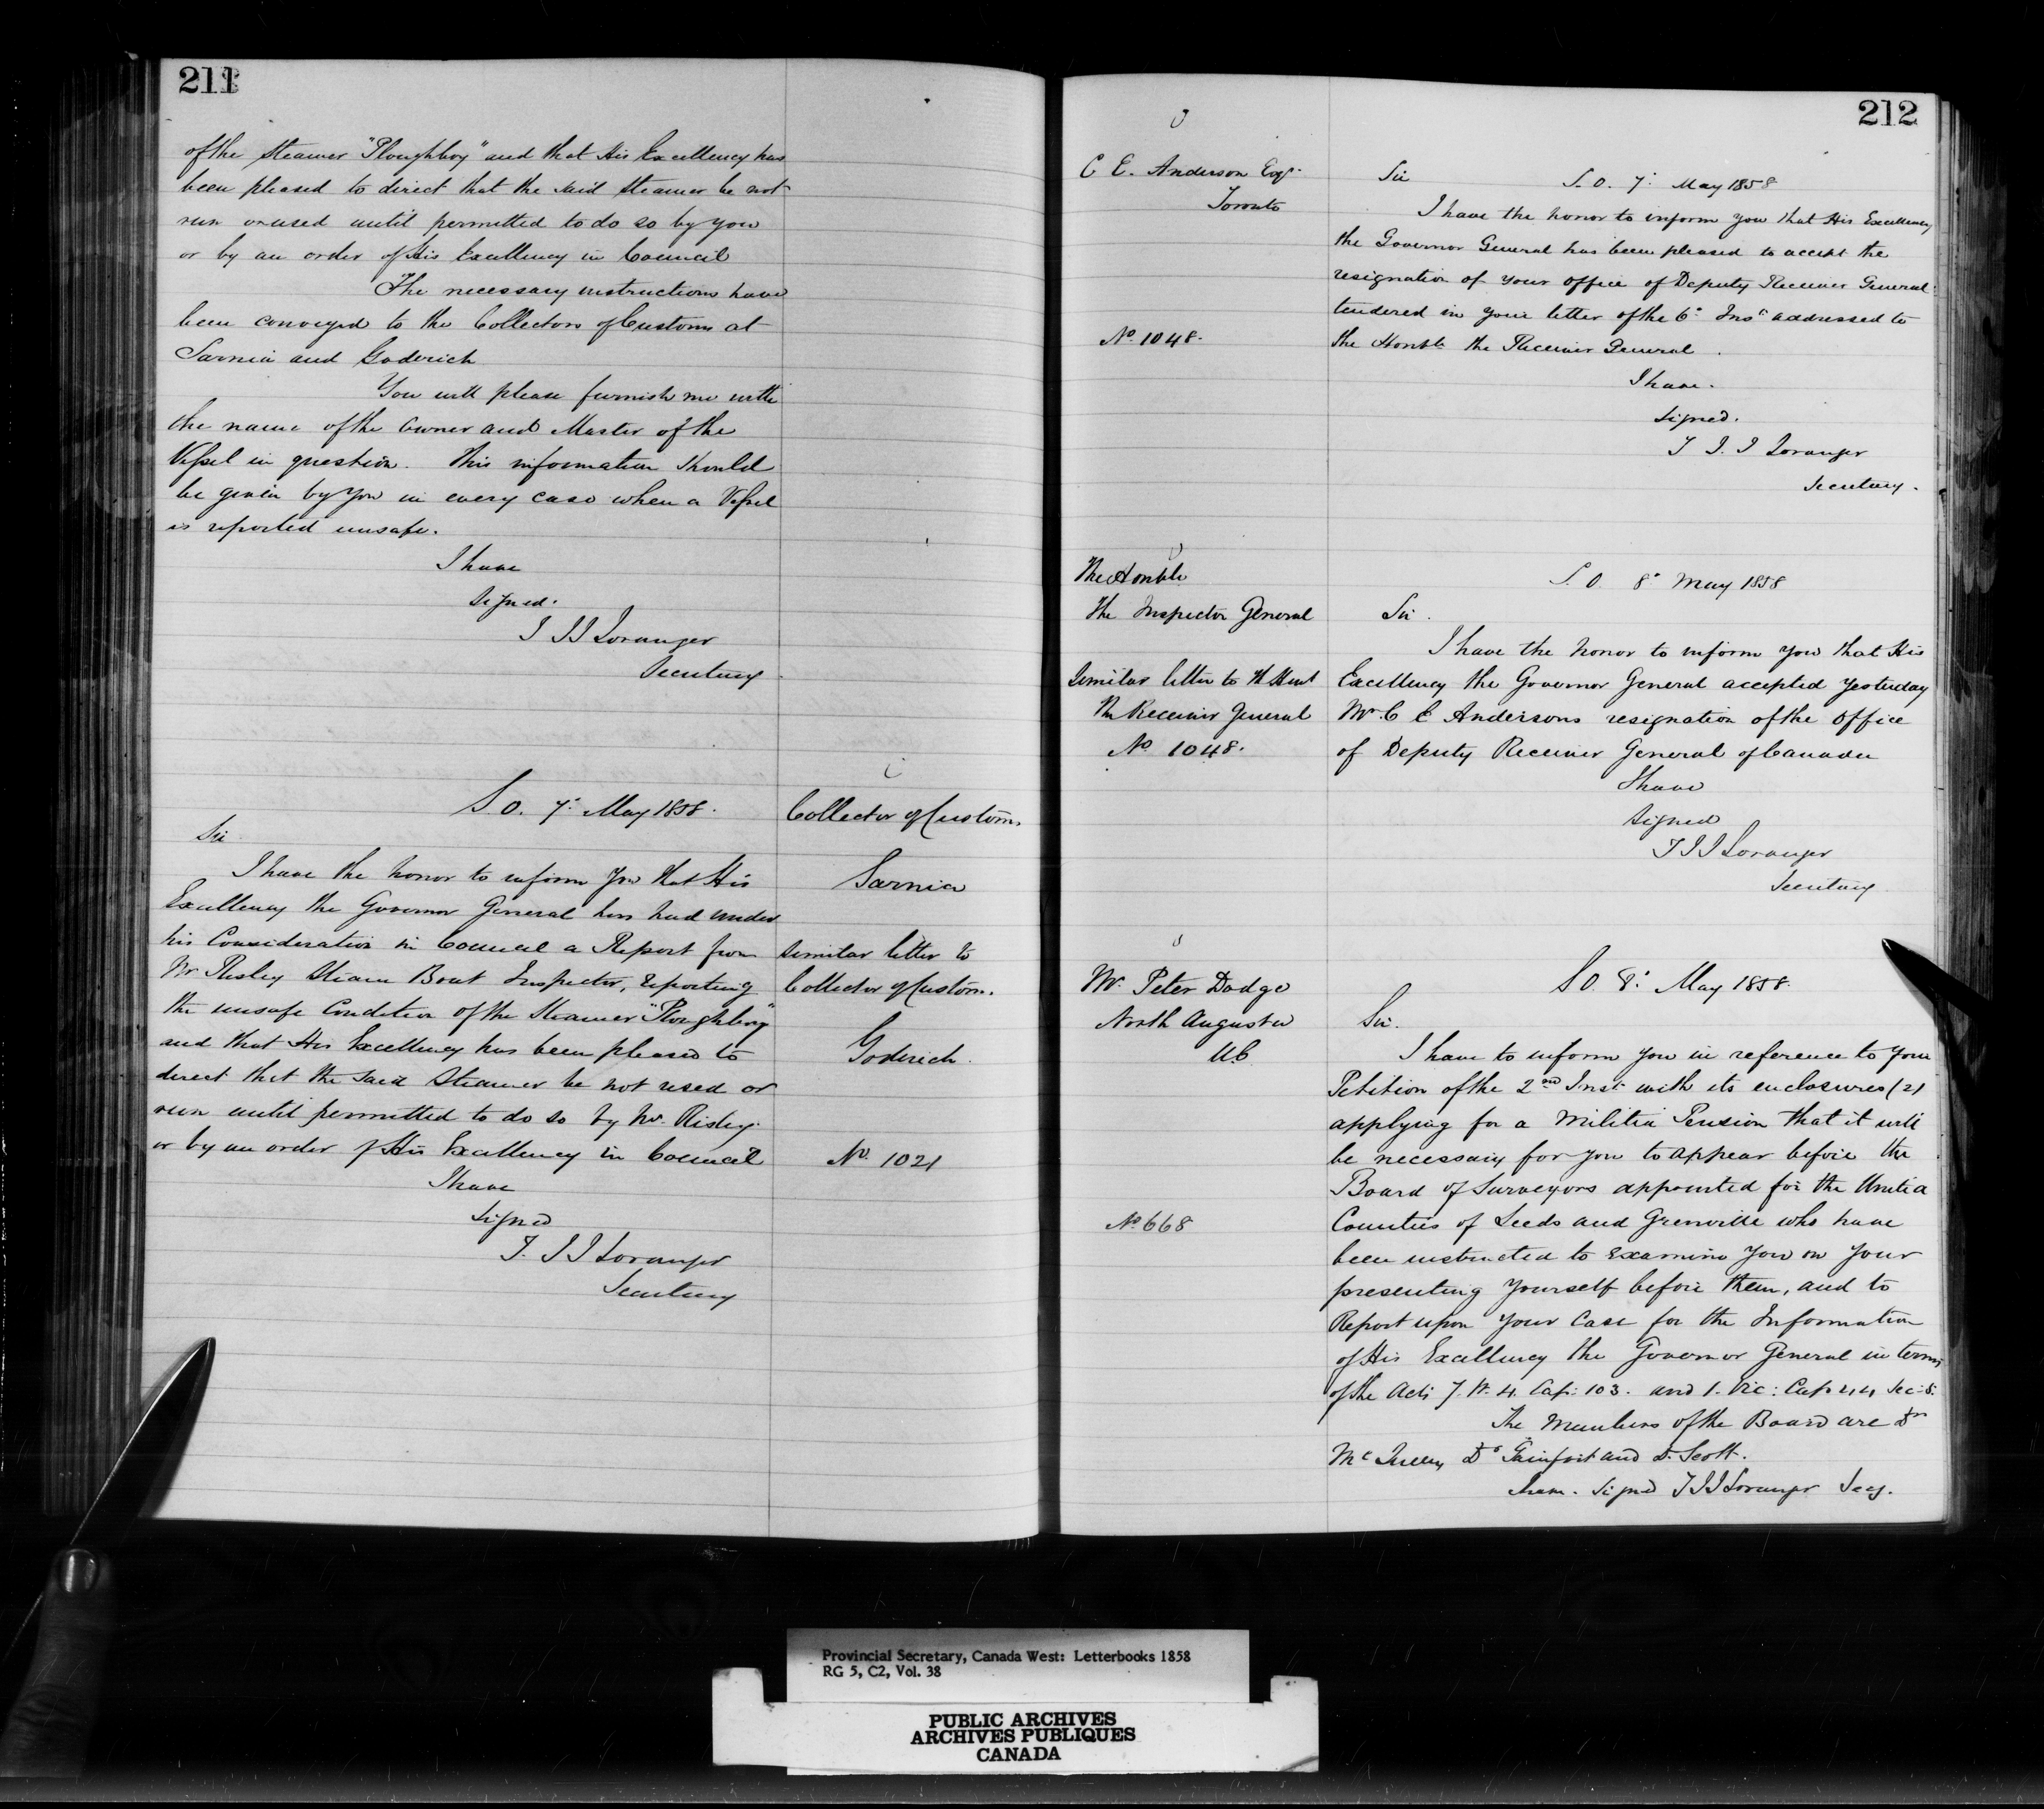 211
of the Steamer "Ploughboy" and that His Excellency has
been pleased to direct that the said steamer be not
run or used until permitted to do so by you
or by an order of His Excellency in Council
The necessary instructions have
been conveyed to the Collectors of Customs at
Sarnia and Goderich
You will please furnish me with
the name of the Owner and Master of the
Vessel in question. This information should
be given by you in every case when a Vessel
is reported unsafe.
I have
Signed.
T J J Loranger
Secretary
S. O. 7: May 1858.
Collector of Customs
Sarnia
Similar letter to
Collector of Customs.
Goderich.
No. 1021
Sir
I have the honor to inform you that His
Excellency the Governor General has had under
his Consideration in Council a Report from
Mr Risley Steam Boat Inspector, reporting
the unsafe Condition of the Steamer "Ploughboy"
and that His Excellency has been pleased to
direct that the said Steamer be not used or
run until permitted to do so by Mr. Risley
or by an order of His Excellency in Council
I have
Signed
T. J J Loranger
Secretary
212
C E. Anderson Esqr.
Toronto
No 1048.
Sir
S. O. 7: May 1858
I have the honor to inform you that His Excellency
the Governor General has been pleased to accept the
resignation of your office of Deputy Receiver General
tendered in your letter of the 6: Inst addressed to
the Honble the Receiver General.
I have.
Signed.
T J. J Loranger
Secretary.
The Honble
The Inspector General
Similar letter to
The Receiver General
No 1048.
S. O. 8: May 1858
Sir.
I have the honor to inform you that His
Excellency the Governor General accepted yesterday
Mr. C E Andersons resignation of the Office
of Deputy Receiver General of Canada
I have
Signed
T J J Loranger
Secretary
Mr. Peter Dodge
North Augusta
U.C
No 668
S O. 8: May 1858.
Sir.
I have to inform you in reference to your
Petition of the 2nd Inst with its enclosures (2)
applying for a Militia Pension that it will
be necessary for you to appear before the
Board of Surveyors appointed for the United
Counties of Leeds and Grenville who have
been instructed to Examine you on your
presenting yourself before them, and to
Report upon your Case for the Information
of His Excellency the Governor General in terms
of the Acts 7. W. 4. Cap: 103. and 1. Vic: Cap 44 Sec: 5.
The Members of the Board are Dr
and D. Scott.
I have. Signed T J J Loranger Secy.
Provincial Secretary, Canada West: Letterbooks 1858
RG 5, C2, Vol. 38
PUBLIC ARCHIVES
ARCHIVES PUBLIQUES
CANADA